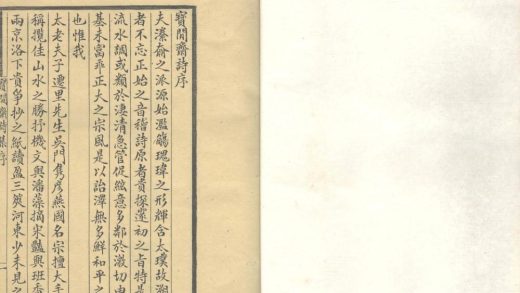 寶閒齋詩序
夫濬之派源始濫觴瑰瑋之形輝含太璞故溯
者不忘正始之音稽詩原者貴探邃初之旨特是
流水調或類於淒清急管促絃意多鄰於激切由
基未富乖正大之宗風是以詒譚無多鮮和平之
也惟我
太老夫子遷里先生吳門雋彥燕國名宗擅大手
稱攬佳山水之勝抒機文與潘藻摛宋豔與班香
兩京洛下貴爭抄之紙讀盈三篋河東少未見之
寶閒齋詩集序